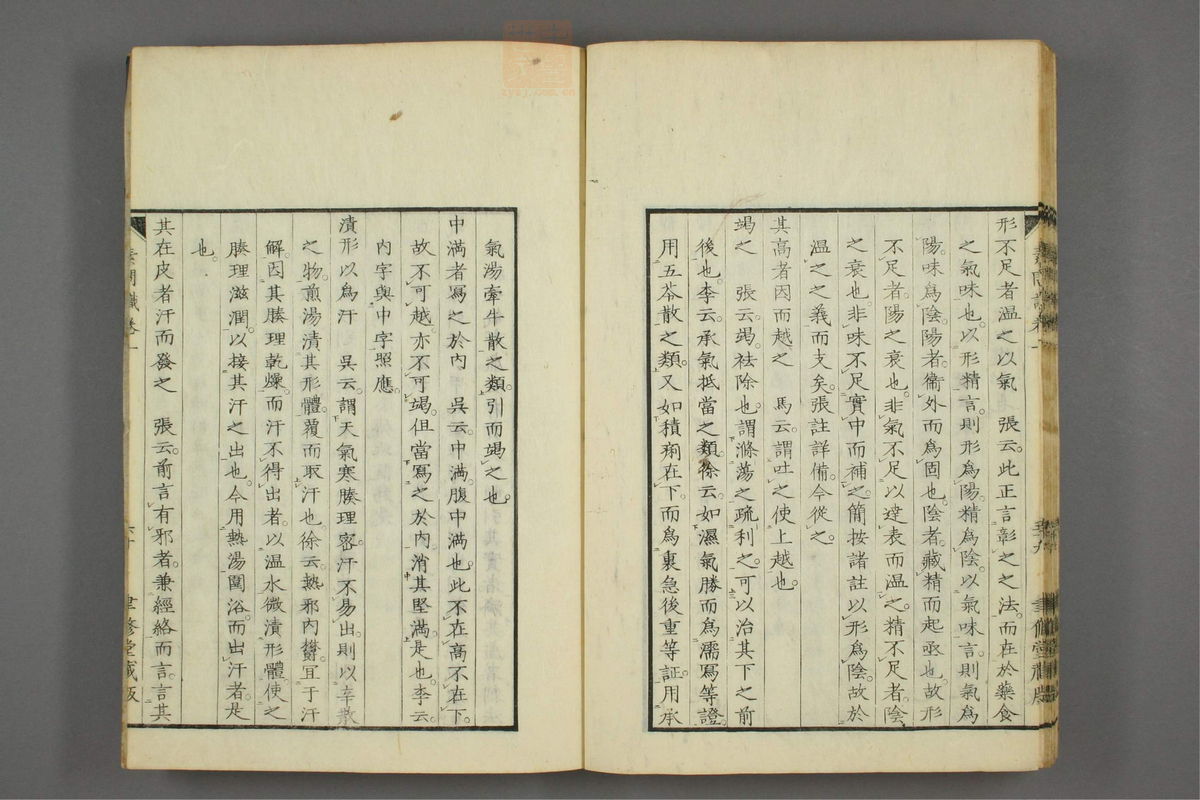 形不足者溫之以氣　張云此正言彰之之法而在於藥食
之氣味也以形精言則形爲陽精爲陰以氣味言則氣爲
陽味爲陰陽者衞外而爲固也陰者藏精而起亟也故形
不足者陽之衰也非氣不足以達表而溫之精不足者陰
之衰也非味不足實中而補之簡按諸註以形爲陰故於
溫之之義而支矣張註詳備今從之
其高者因而越之　馬云謂吐之使上越也
竭之　張云竭祛除也謂滌蕩之疏利之可以治其下之前
後也李云承氣抵當之類徐云如濕氣勝而爲濡寫等證
用五苓散之類又如積痢在下而爲裏急後重等証用承
氣湯牽牛散之類引而竭之也
中滿者寫之於內　吳云中滿腹中滿也此不在高不在下
故不可越亦不可竭但當寫之於內消其堅滿是也李云
內字與中字照應
漬形以爲汗　吳云謂天氣寒腠理密汗不易出則以辛散
之物煎湯漬其形體覆而取汗也徐云熱邪內鬱宜于汗
解因其腠理乾燥而汗不得出者以溫水微漬形體使之
腠理滋潤以接其汗之出也今用熱湯圍浴而出汗者是
也
其在皮者汗而發之　張云前言有邪者兼經絡而言言其
素問識卷一
六十
聿修堂藏版
zysj.com.cn